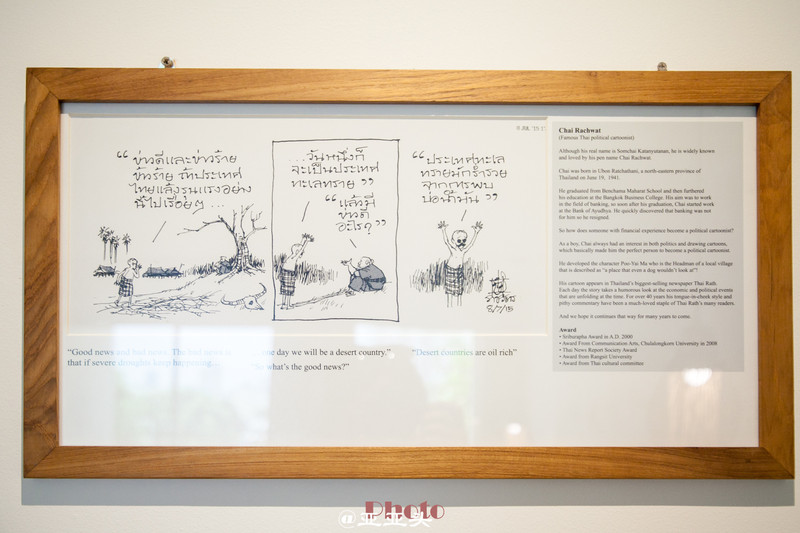 “ข่าวดีและข่าวร้าย
ข่าวร้าย ถ้าประเทศ
ไทยแล้งรุนแรงอย่าง
นี้ไปเรื่อยๆ...
...วันหนึ่งก็
จะเป็นประเทศ
ทะเลทราย”
“แล้วมี
ข่าวดี
อะไร?”
“ประเทศทะเล
ทรายมักร่ำรวย
จากการพบ
บ่อน้ำมัน”
8/7/15
“Good news and bad news. The bad news is
that if severe droughts keep happening...
one day we will be a desert country.”
“So what’s the good news?”
“Desert countries are oil rich”
Chai Rachwat
(Famous Thai political cartoonist)
Although his real name is Somchai Katanyutanan, he is widely known
and loved by his pen name Chai Rachwat.
Chai was born in Ubon Ratchathani, a north-eastern province of
Thailand on June 19, 1941.
He graduated from Benchama Maharat School and then furthered
his education at the Bangkok Business College. His aim was to work
in the field of banking, so soon after his graduation, Chai started work
at the Bank of Ayudhya. He quickly discovered that banking was not
for him so he resigned.
So how does someone with financial experience become a political cartoonist?
As a boy, Chai always had an interest in both politics and drawing cartoons,
which basically made him the perfect person to become a political cartoonist.
He developed the character Poo-Yai Ma who is the Headman of a local village
that is described as “a place that even a dog wouldn’t look at”!
His cartoon appears in Thailand’s biggest-selling newspaper Thai Rath.
Each day the story takes a humorous look at the economic and political events
that are unfolding at the time. For over 40 years his tongue-in-cheek style and
pithy commentary have been a much-loved staple of Thai Rath’s many readers.
And we hope it continues that way for many years to come.
Award
• Sriburapha Award in A.D. 2000
• Award From Communication Arts, Chulalongkorn University in 2008
• Thai News Report Society Award
• Award from Rangsit University
• Award from Thai cultural committee
Photo
@亚亚头